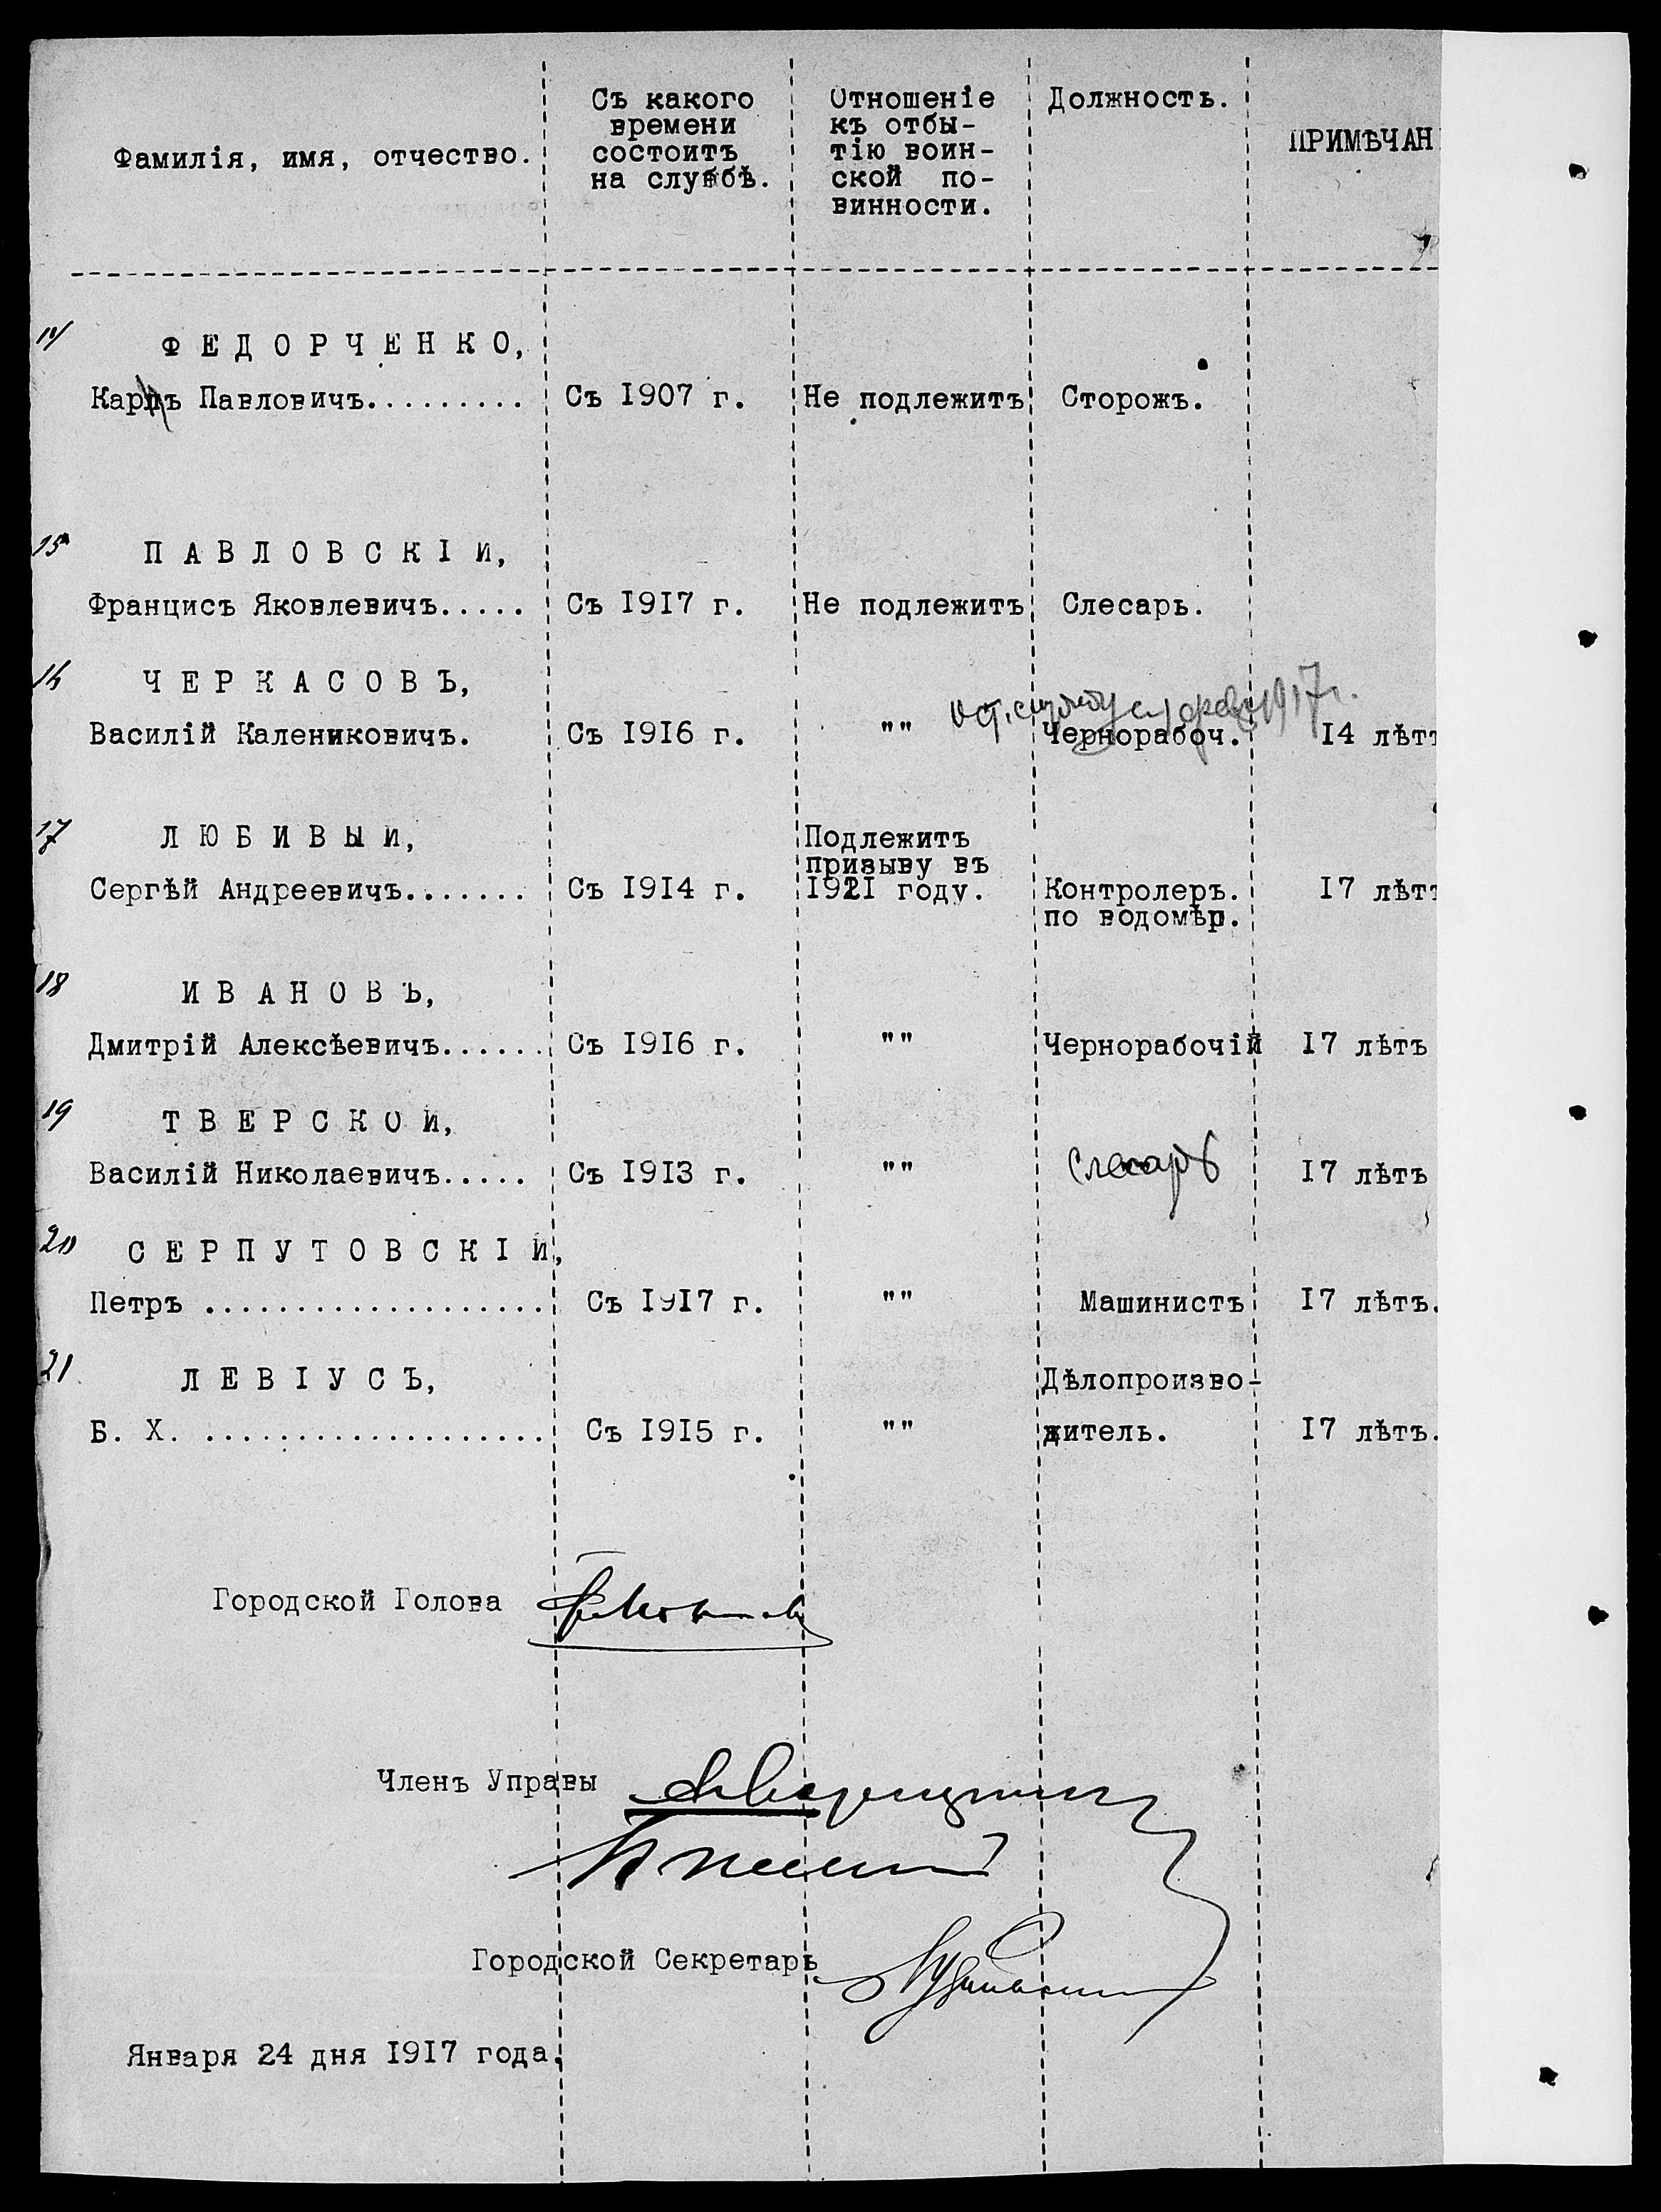 Фамилія, имя, отчество.
Съ какого
времени
состоитъ
на службѣ.
Отношеніе
къ отбы-
тію воин-
ской по-
винности.
Должность.
ПРИМѢЧАН
14 ФЕДОРЧЕНКО,
Карпъ Павловичъ......... Съ 1907 г. Не подлежитъ Сторожъ.
15 ПАВЛОВСКІИ,
Францисъ Яковлевичъ..... Съ 1917 г. Не подлежитъ Слесарь.
16 ЧЕРКАСОВЪ,
ост. службу 1917 г.
Василій Калениковичъ. Съ 1916 г. "" Чернорабоч. 14 лѣтъ
17 ЛЮБИВЫИ,
Подлежитъ
призыву въ
Сергѣй Андреевичъ....... Съ 1914 г. 1921 году. Контролеръ. 17 лѣтъ
по водомѣр.
18 ИВАНОВЪ,
Дмитрій Алексѣевичъ...... Съ 1916 г. "" Чернорабочій 17 лѣтъ
19 ТВЕРСКОИ,
Василій Николаевичъ..... Съ 1913 г. "" Слесарь 17 лѣтъ
20 СЕРПУТОВСКІИ,
Петръ ................... Съ 1917 г. "" Машинистъ 17 лѣтъ.
21 ЛЕВІУСЪ,
Дѣлопроизво-
Б. Х. ................... Съ 1915 г. "" дитель. 17 лѣтъ.
Городской Голова
Членъ Управы
Городской Секретарь
Января 24 дня 1917 года.